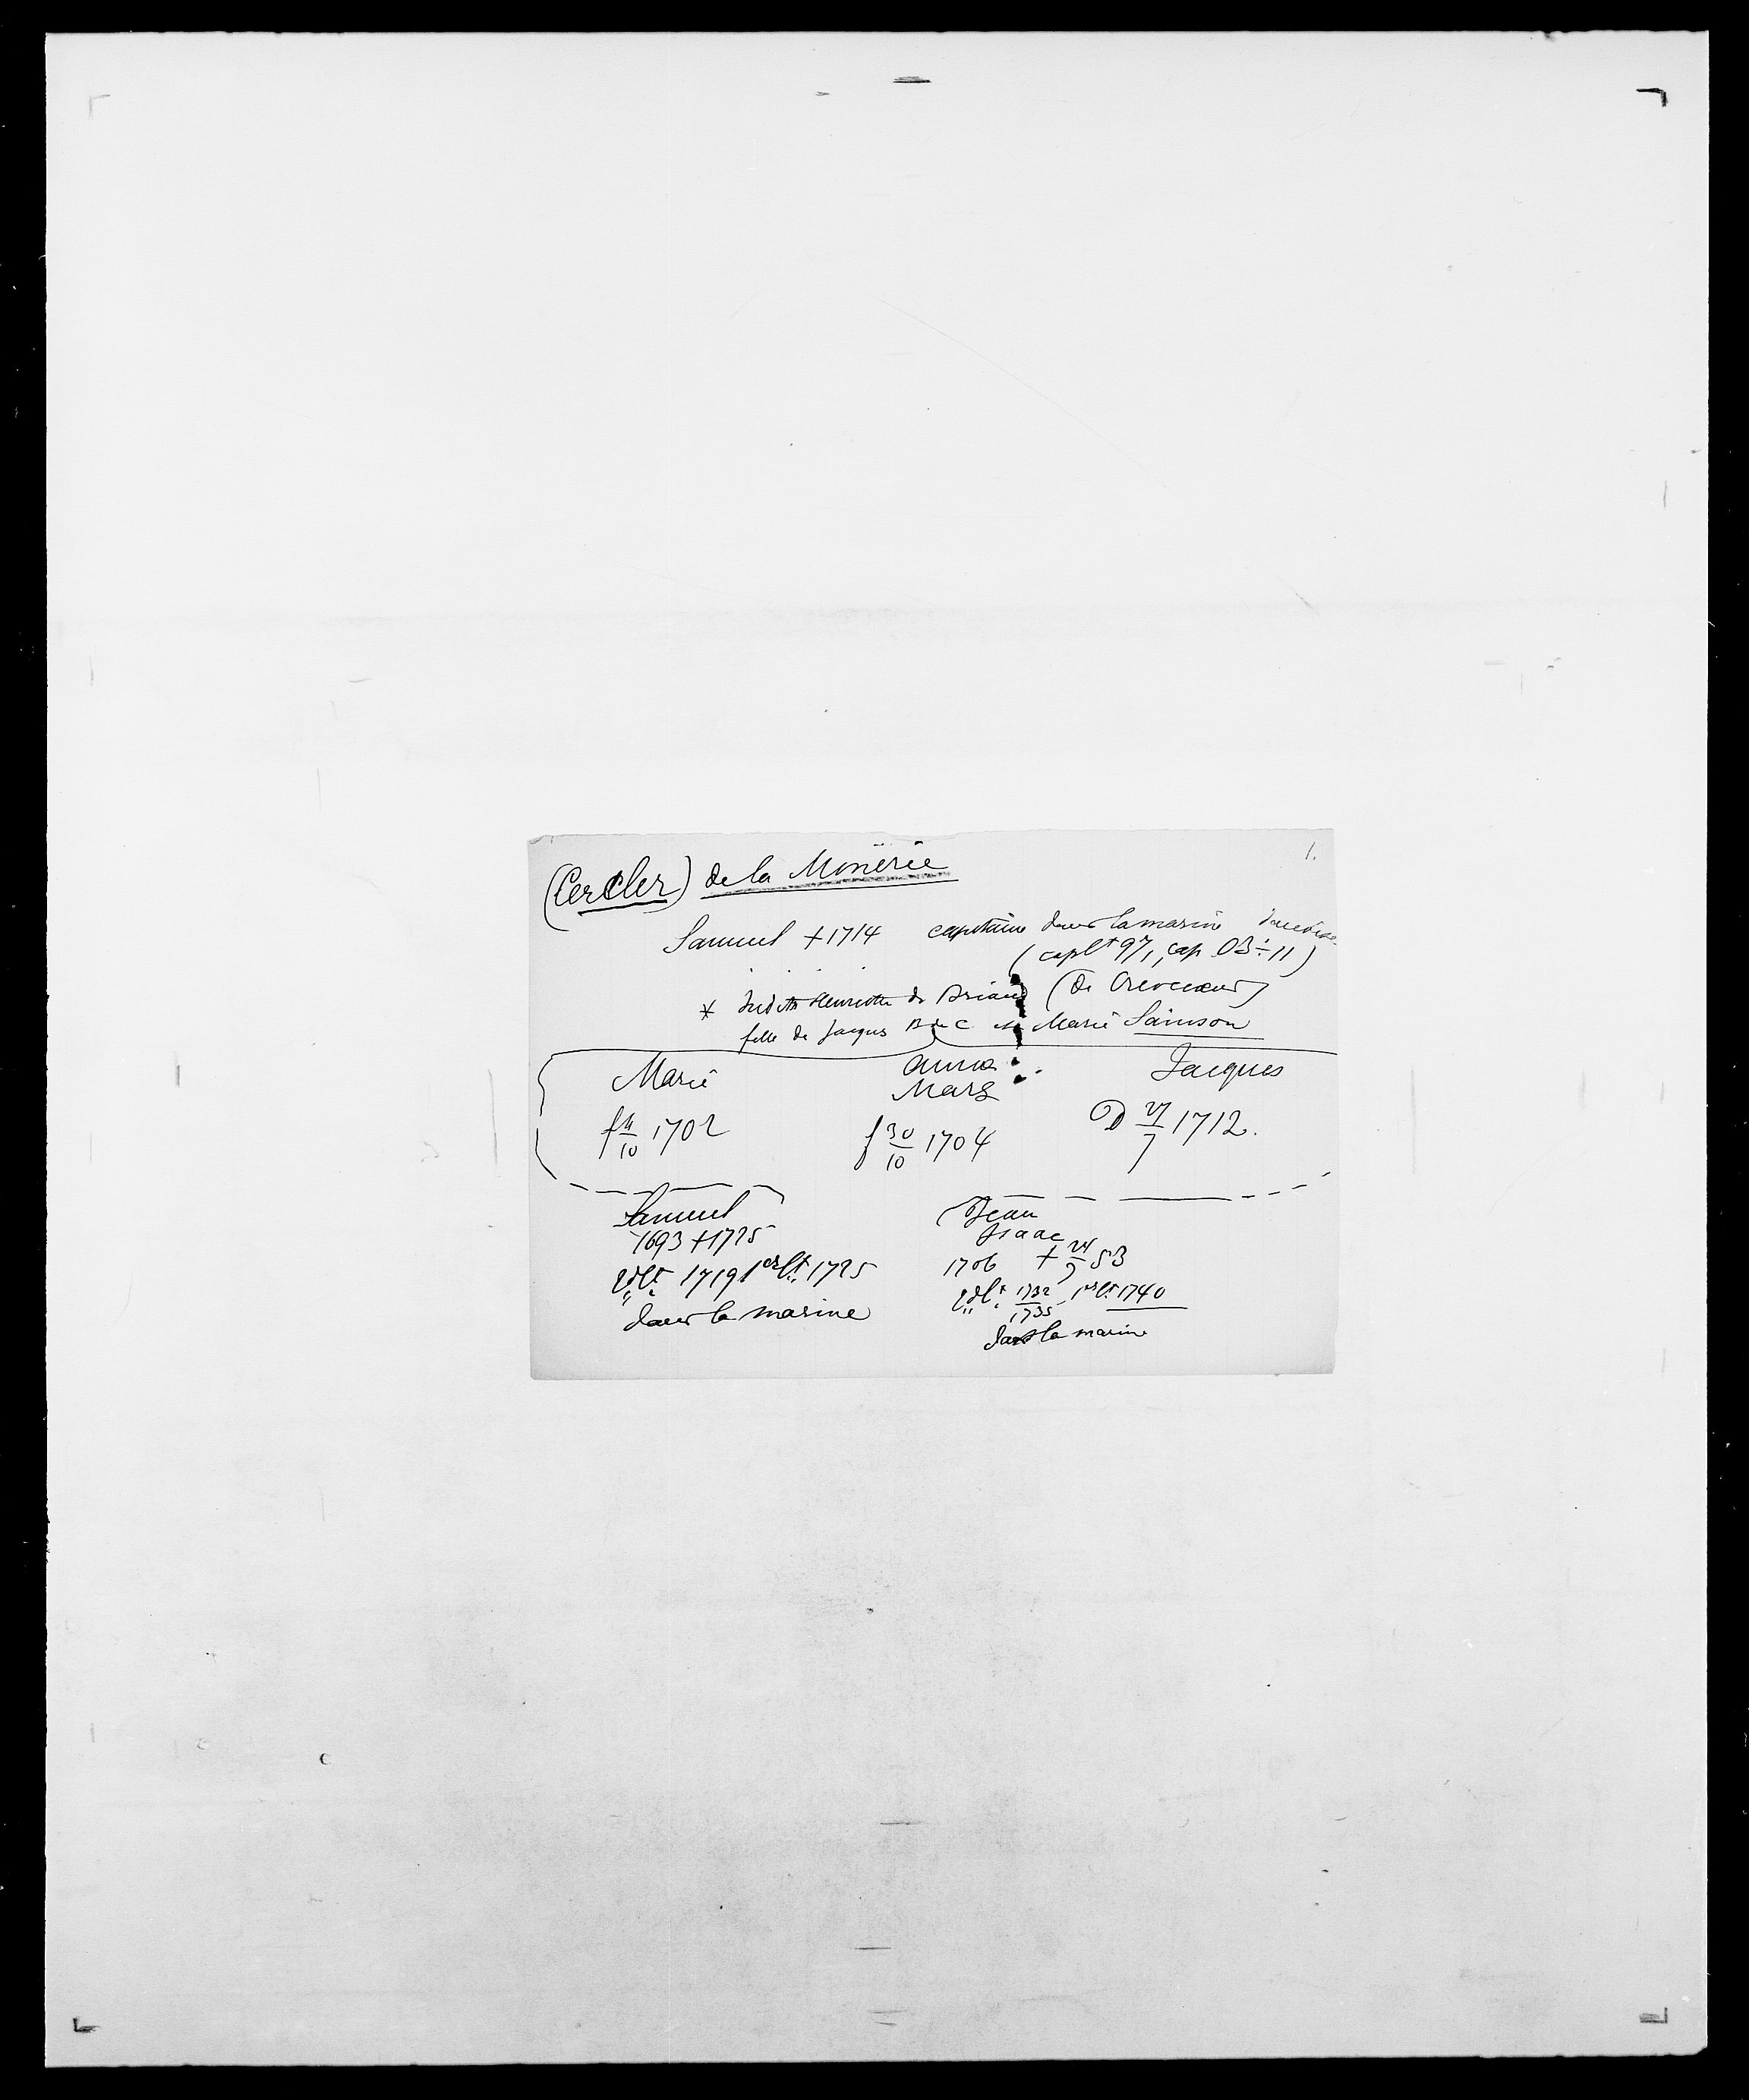 1.
(Cercler) de la Monerie
Samuel + 1714 capitaine dans la marine danoise
(caplt 97/1, cap 03÷11)
* Judith Henriette de Briand (de Crevecoeur)
fille de Jacques B de C et Marie Saimson
Marie Anna Marg Jacques
f 4/10 1702 f 30/10 1704 D 27/7 1712.
Samuel Jean
Isaac
1693 + 1725 1706 + 24/9 53
2d lt 1719 1er lt 1725 2d lt 1732/1735 1er lt 1740
dans la marine dans la marine